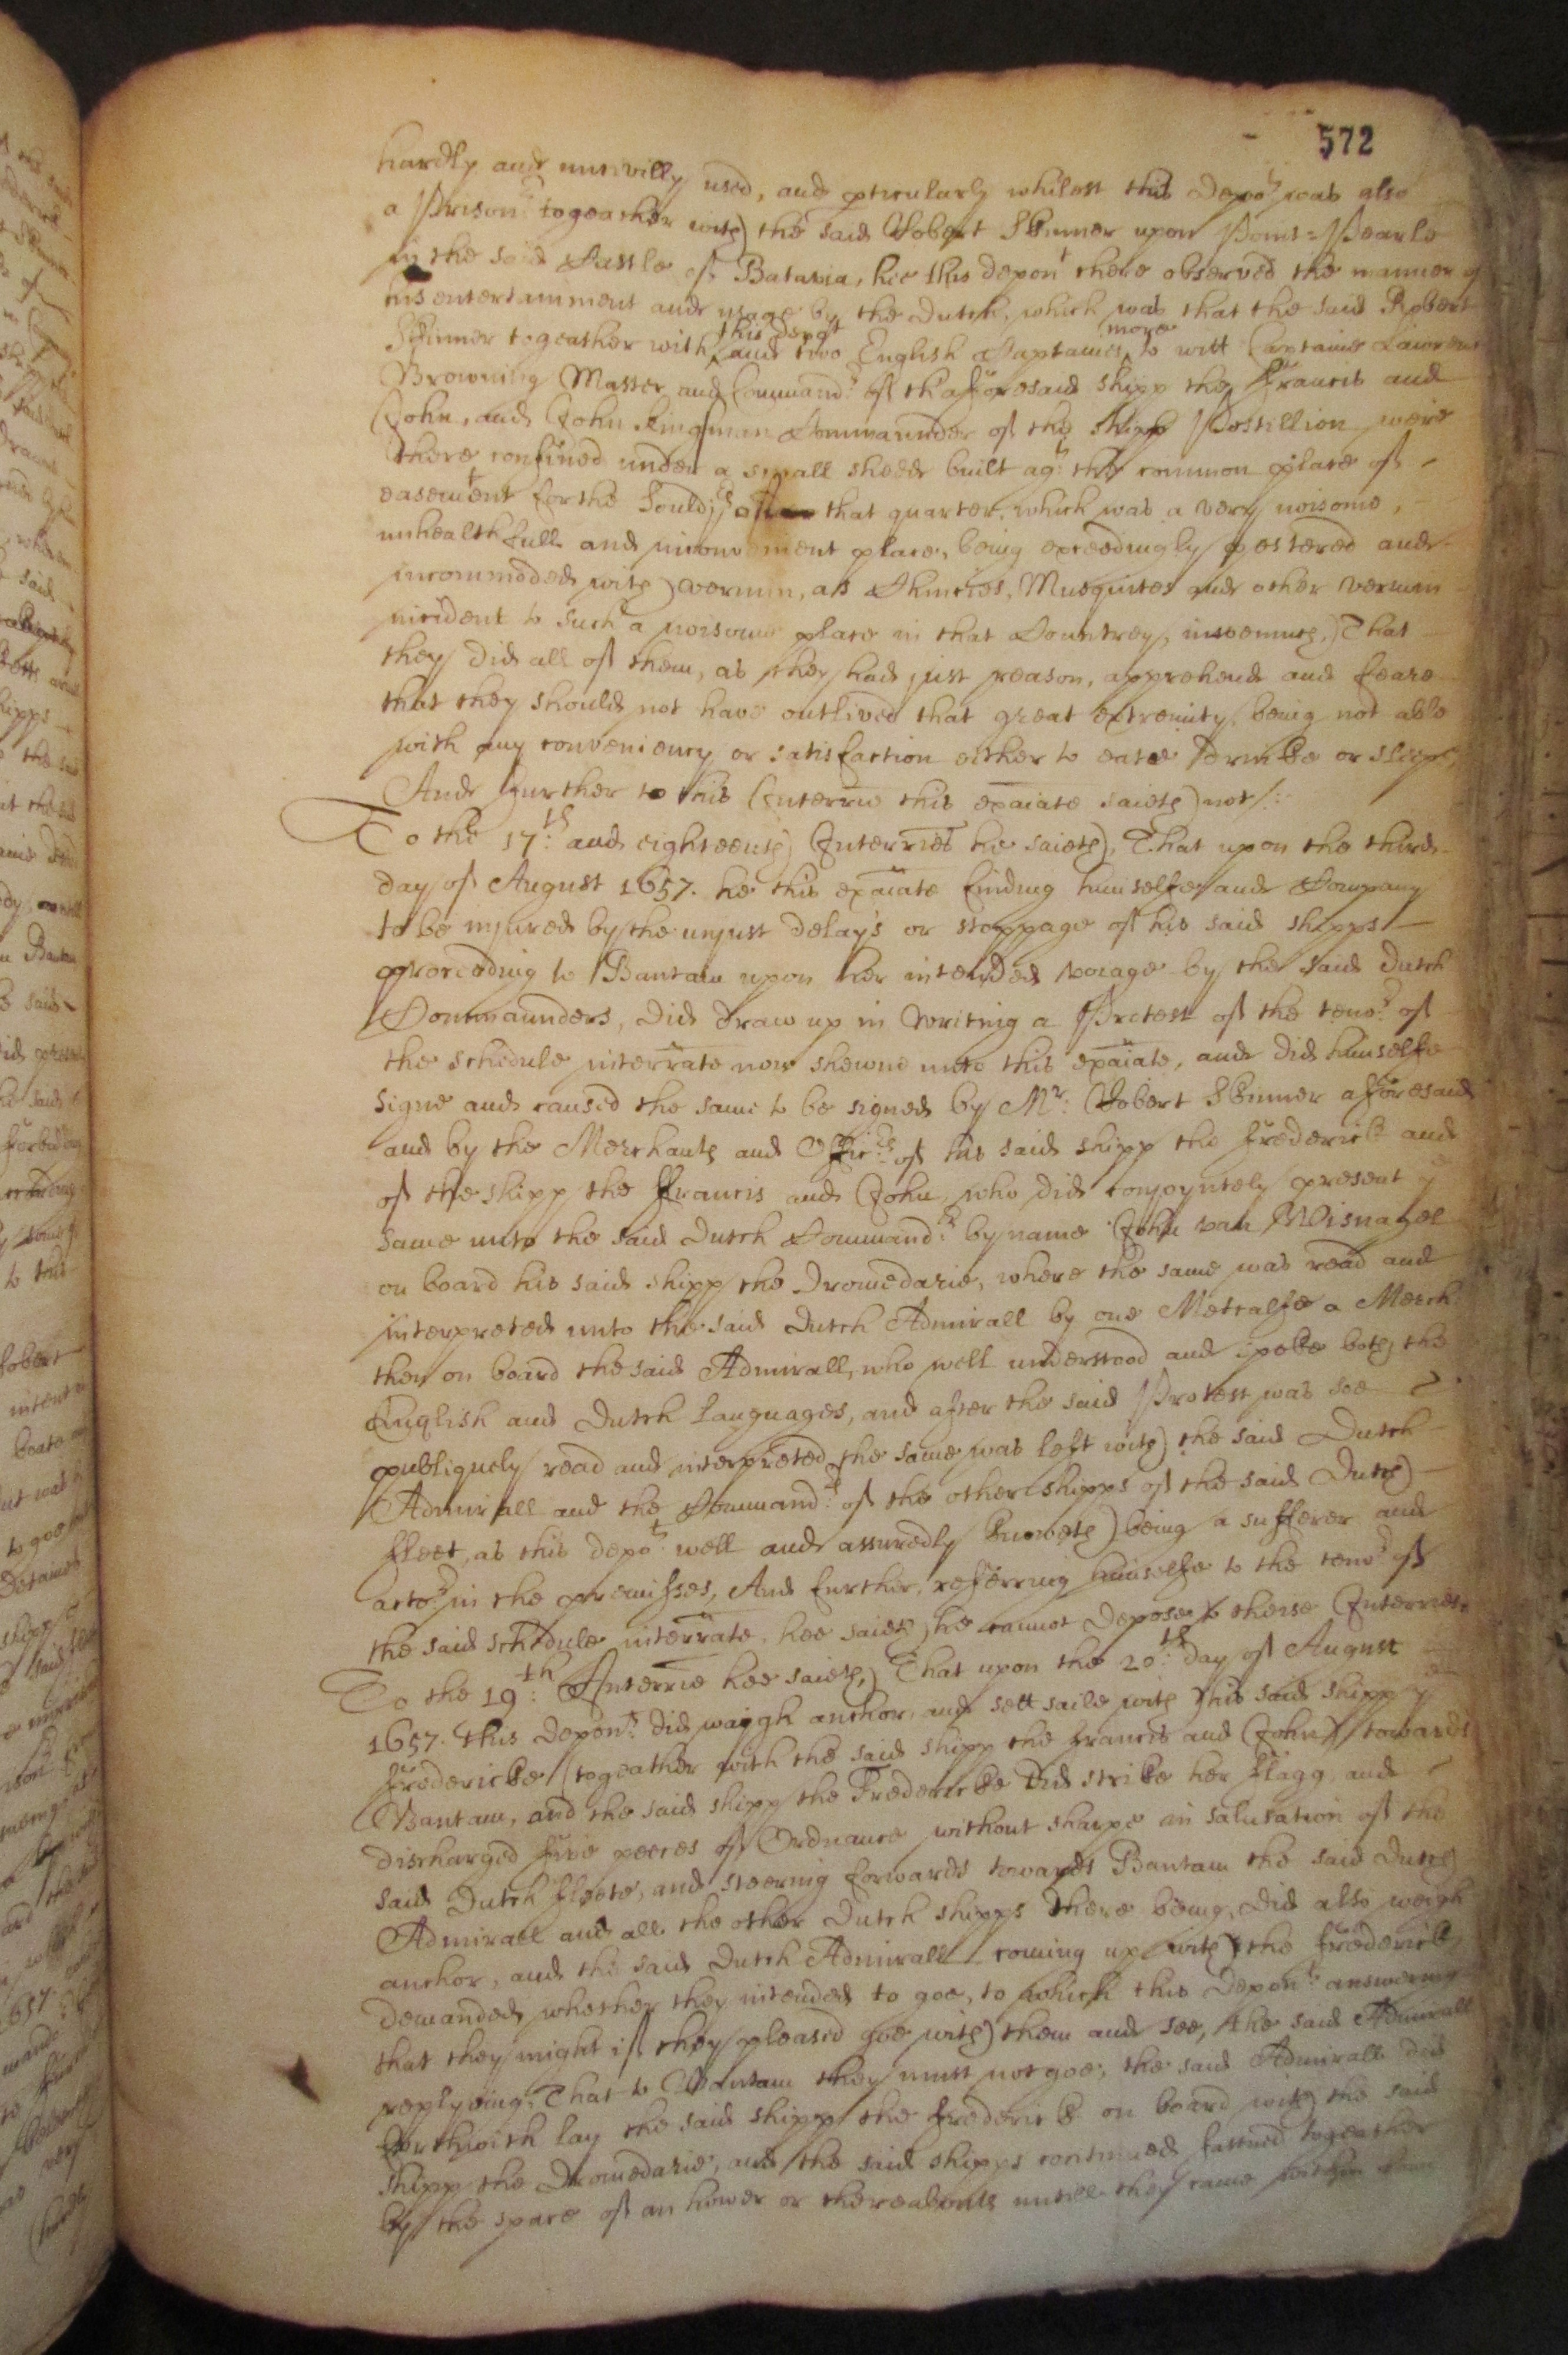 572
hardly and uncivilly used, and pticularly whilest this Depo:t was also
a Prison:r togeather with the said Robert Skinner upon Point=Pearle
in the said Castle of Batavia, hee this depon:t there observed the manner of
his entertainment and usage by the Dutch, which was that the said Robert
Skinner togeather with this depo:t and two English Captaines more to witt Captaine Lawrence
Browning Master and Command:r of th'aforesaid shipp the ffrancis and
John, and John Kingman Commaunder of the shipp Postillion were
there confined under a small shedd built ag:t the common place of
easement for the Sould:rs of that quarter, which was a very noisome,
unhealthfull and inconvenient place, being exceedingly pestered and
incommoded with vermin, as Chincies, Musquitos and other vermin
incident to such a noisome place in that Countrey, insoemuch, That
they did all of them, as they had just reason, apprehend and feare
that they should not have outlived that great extremity, being not able
with any conveniency or satisfaction either to eate drinke or sleepe,
And further to this Interrie this exaiate saieth not /:
To the 17:th and eighteenth Interries he saieth, That upon the third
day of August 1657. he this exaiate finding himselfe and Company
to be injured by the unjust delay's or stoppage of his said shipps
proceeding to Bantam upon her intended voiage by the said Dutch
Commaunders, did draw up in writing a Protest of the teno:r of
the schedule interrate now shewne unto this exaiate, and did himselfe
signe and caused the same to be signed by M:r Robert Skinner aforesaid
and by the Merchants and Offic:rs of his said shipp the Frederick and
of the shipp the ffrancis and John, who did conjoyntely present y:e
same unto the said Dutch Command:r by name John van Wisnagel
on board his said shipp the Dromedarie, where the same was read and
interpreted unto the said Dutch Admirall by one Metcalfe a Merch:t
then on board the said Admirall, who well understood and spoke both the
English and Dutch languages, and after the said Protest was soe
publiquely read and interpreted the same was left with the said Dutch
Admirall and the Command:rs of the other shipps of the said Dutch
fleet, as this depo:t well and assuredly knoweth being a sufferer and
acto:r in the premisses, And further, referring himselfe to the teno:r of
the said schedule interrate, hee saieth he cannot depose to theise Interries.
To the 19:th Interrie hee saieth, That upon the 20:th day of August
1657. this Depon:t did waygh anchor, and sett saile with his said shipp y:e
Fredericke (togeather with the said shipp the francis and John) towards
Bantam, and the said shipp the Fredericke did strike her flagg, and
discharged five peeces of Ordnance without sharpe in salutation of the
said Dutch fleete, and steering forwards towards Bantam the said Dutch
Admirall and all the other Dutch shipps there being, did also weigh
anchor, and the said Dutch Admirall coming up with the frederick
demanded whether they intended to goe, to which this Depon:t answering
that they might if they pleased goe with them and see, the said Admirall
replyeing, That to Bantam they must not goe, the said Admirall did
forthwith lay the said shipp the frederick on board with the said
shipp the Dromedarie, and the said shipps continued fastned togeather
by the space of an hower or thereabouts untill they came within